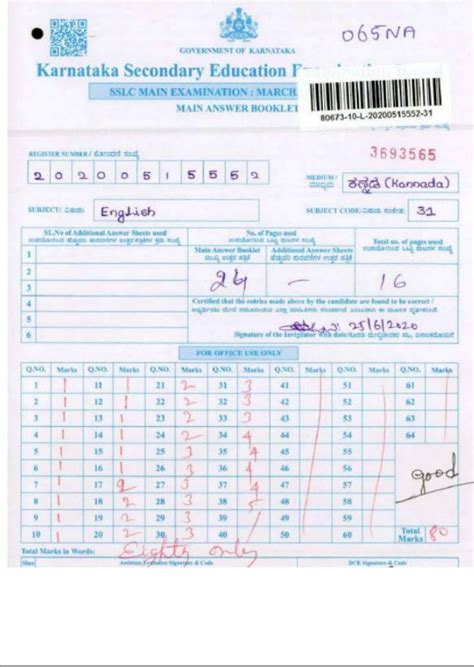 065NA
GOVERNMENT OF KARNATAKA
Karnataka Secondary Education
SSLC MAIN EXAMINATION : MARCH
MAIN ANSWER BOOKLET
80673-10-L-20200515552-31
3693565
REGISTER NUMBER / ನೋಂದಣಿ ಸಂಖ್ಯೆ
20200515552
MEDIUM / ಮಾಧ್ಯಮ ಕನ್ನಡ (Kannada)
SUBJECT / ವಿಷಯ: English
SUBJECT CODE / ವಿಷಯ ಸಂಕೇತ: 31
Sl.No of Additional Answer Sheets used No. of Pages used Total no. of pages used
Main Answer Booklet Additional Answer Sheets
1
2
3 24 – 16
4 Certified that the entries made above by the candidate are found to be correct /
5
6 25/6/2020
Signature of the Invigilator with date
FOR OFFICE USE ONLY
Q.NO. Marks Q.NO. Marks Q.NO. Marks Q.NO. Marks Q.NO. Marks Q.NO. Marks Q.NO. Marks
1 1 11 1 21 2 31 3 41 51 61
2 1 12 1 22 2 32 3 42 52 62
3 1 13 1 23 2 33 3 43 53 63
4 1 14 1 24 2 34 4 44 54 64
5 1 15 1 25 3 35 4 45 55
6 1 16 1 26 3 36 4 46 56
good
7 1 17 2 27 3 37 4 47 57
8 1 18 2 28 3 38 5 48 58
9 1 19 2 29 3 39 49 59
10 1 20 2 30 3 40 50 60 Total Marks 80
Total Marks in Words: Eighty only
Assistant Evaluator Signature & Code DCE Signature & Code